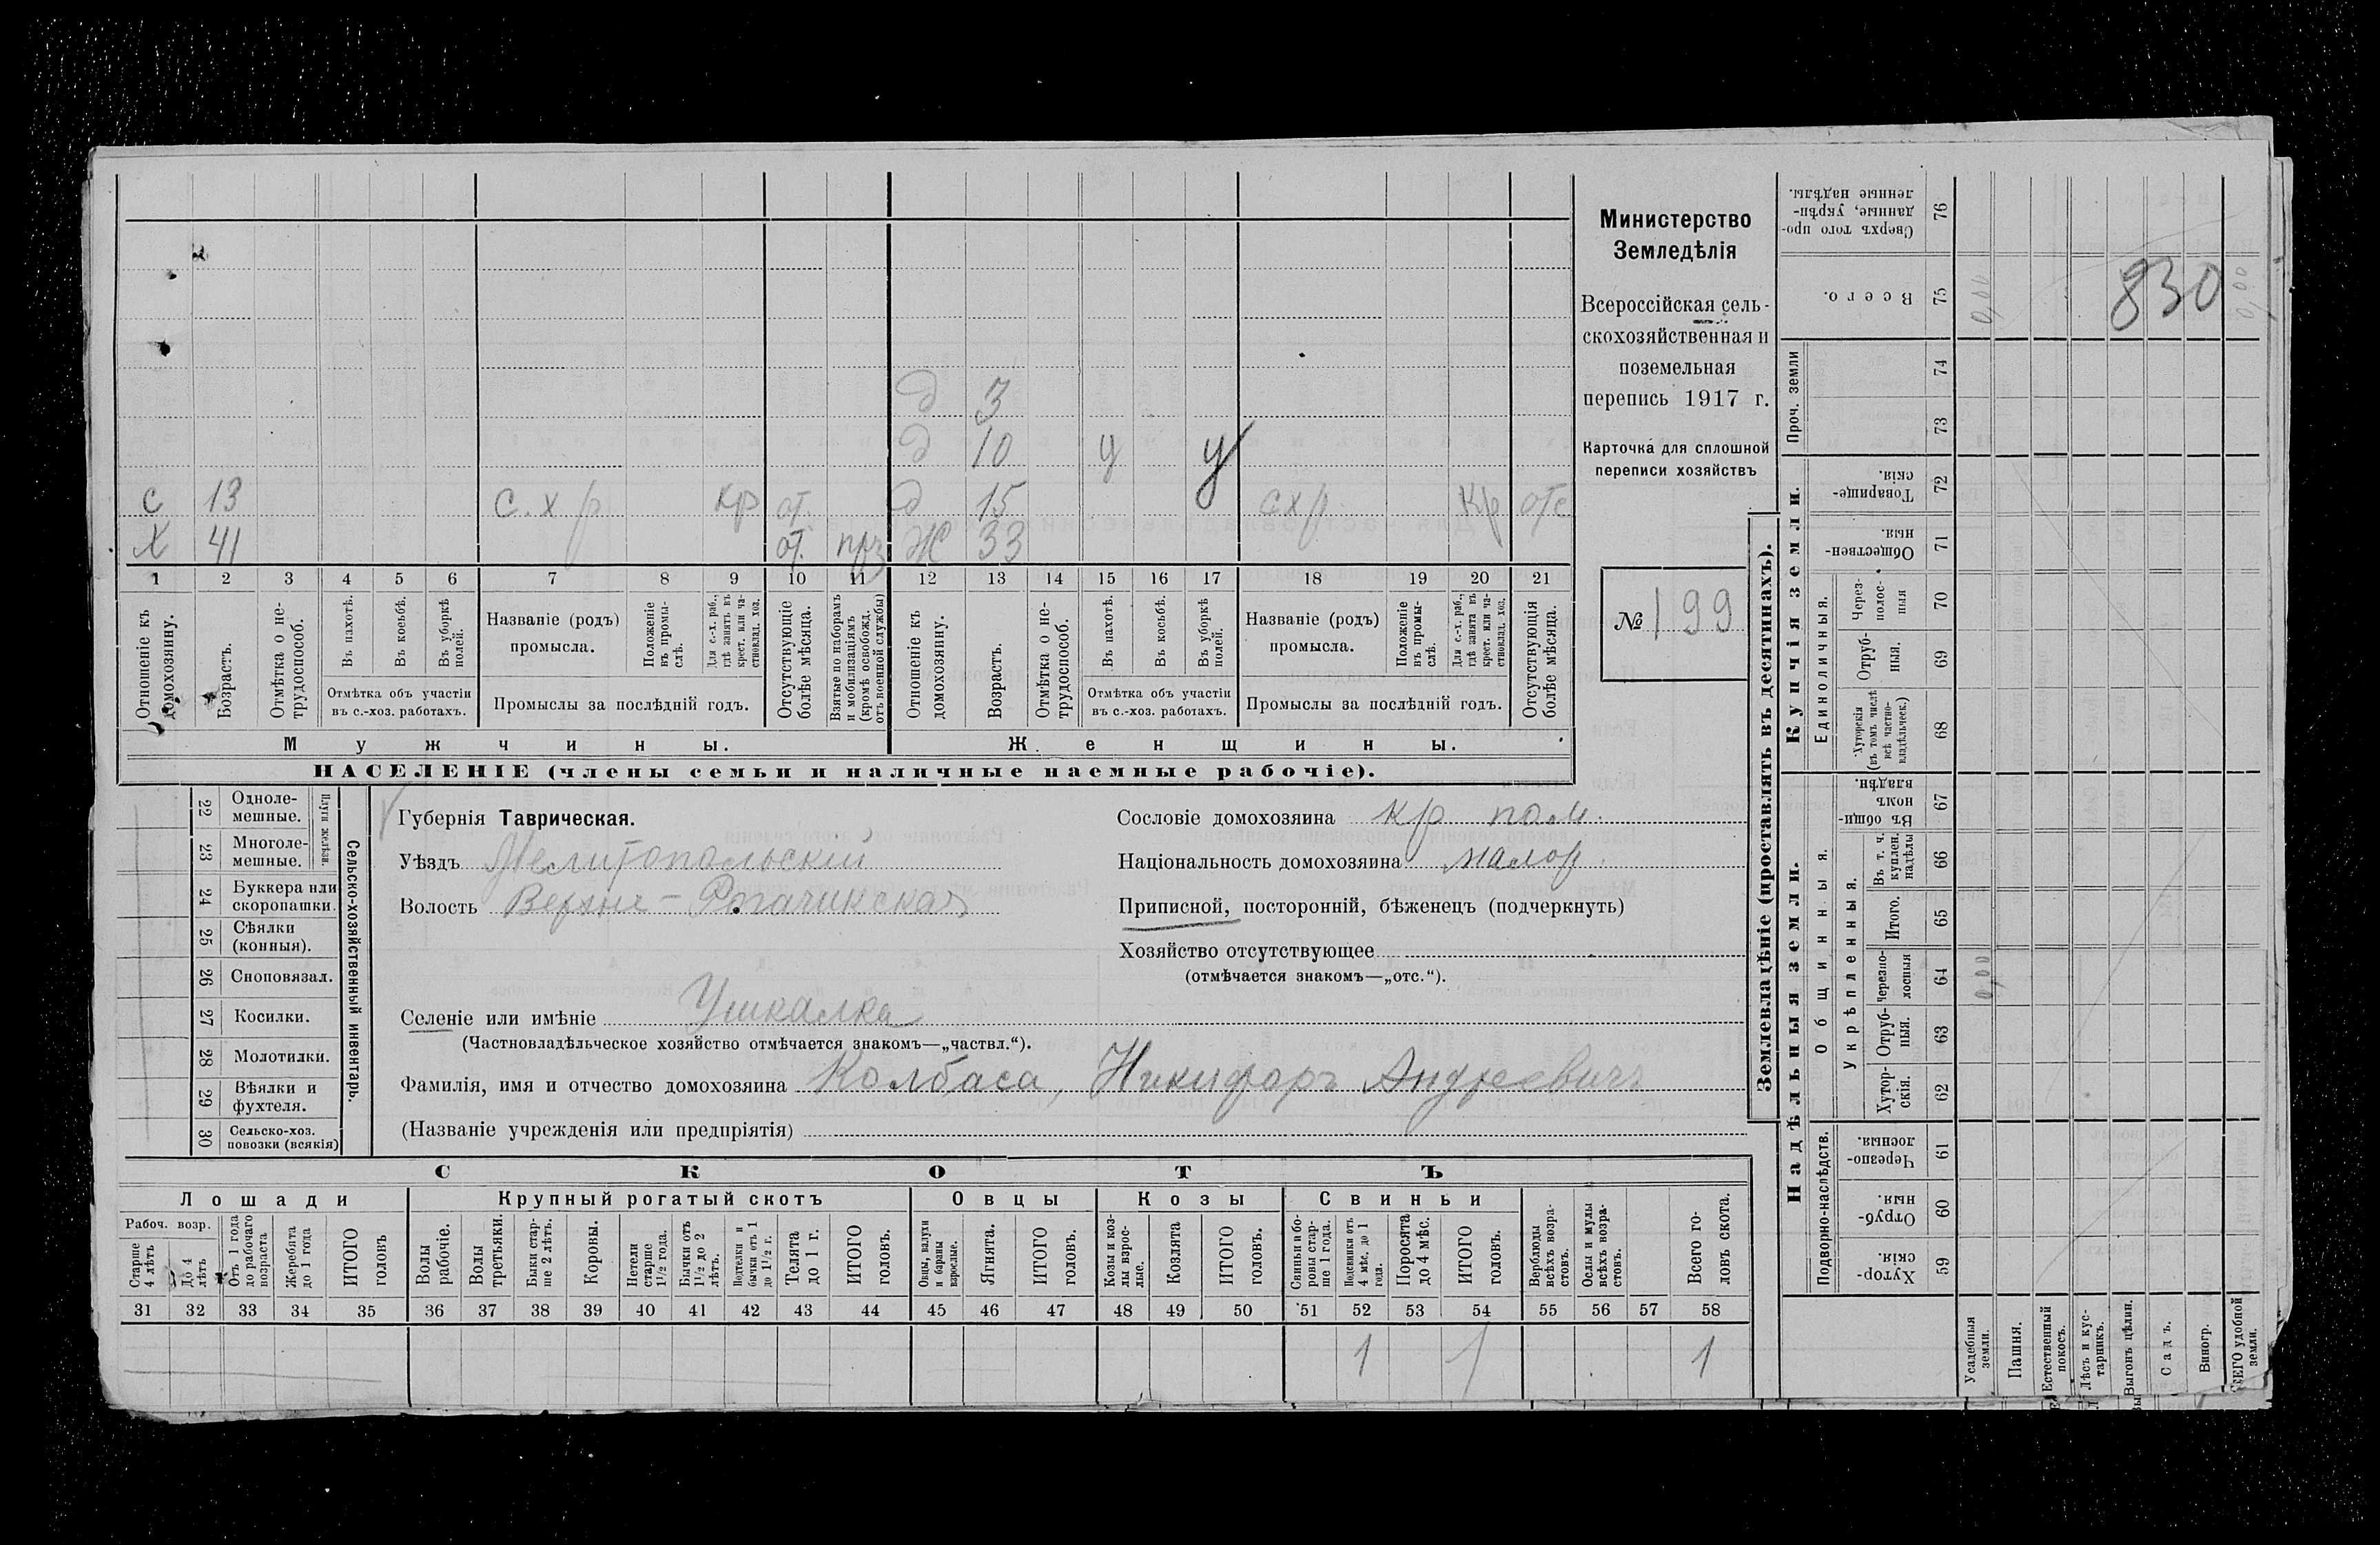 д 3
д 10 у у
с 13 с.х р кр от. д 15 схр кр отс
Х 41 от. прз Ж 33
1 2 3 4 5 6 7 8 9 10 11 12 13 14 15 16 17 18 19 20 21
Отношеніе къ домохозяину.
Возрастъ.
Отмѣтка о нетрудоспособ.
Въ пахотѣ.
Въ косьбѣ.
Въ уборкѣ полей.
Отмѣтка объ участіи
въ с.-хоз. работахъ.
Названіе (родъ)
промысла.
Положеніе въ промыслѣ.
Для с.-х. раб., гдѣ занятъ въ крест. или частновлад. хоз.
Промыслы за послѣдній годъ.
Отсутствующіе болѣе мѣсяца.
Взятые по наборамъ и мобилизаціямъ (кромѣ освобожд. отъ военной службы)
Отношеніе къ домохозяину.
Возрастъ.
Отмѣтка о нетрудоспособ.
Въ пахотѣ.
Въ косьбѣ.
Въ уборкѣ полей.
Отмѣтка объ участіи
въ с.-хоз. работахъ.
Названіе (родъ)
промысла.
Положеніе въ промыслѣ.
Для с.-х. раб., гдѣ занята въ крест. или частновлад. хоз.
Промыслы за послѣдній годъ.
Отсутствующія болѣе мѣсяца.
Мужчины.
Женщины.
НАСЕЛЕНІЕ (члены семьи и наличные наемные рабочіе).
Министерство
Земледѣлія
Всероссійская сель-
скохозяйственная и
поземельная
перепись 1917 г.
Карточка для сплошной
переписи хозяйствъ
№ 199
22 Одноле-
мешные.
23 Многоле-
мешные.
Плуги желѣзн.
24 Буккера или
скоропашки.
25 Сѣялки
(конныя).
26 Сноповязал.
27 Косилки.
28 Молотилки.
29 Вѣялки и
фухтеля.
30 Сельско-хоз.
повозки (всякія)
Сельско-хозяйственный инвентарь.
Губернія Таврическая.
Уѣздъ Мелитопольскій
Волость Верхне-Рогачинская
Сословіе домохозяина кр пом.
Національность домохозяина малор.
Приписной, посторонній, бѣженецъ (подчеркнуть)
Хозяйство отсутствующее
(отмѣчается знакомъ—„отс.“).
Селеніе или имѣніе Ушкалка
(Частновладѣльческое хозяйство отмѣчается знакомъ—„частвл.“).
Фамилія, имя и отчество домохозяина Колбаса, Никифоръ Андреевичъ
(Названіе учрежденія или предпріятія)
СКОТЪ
Лошади
Крупный рогатый скотъ
Овцы
Козы
Свиньи
Рабоч. возр.
Старше 4 лѣтъ
До 4 лѣтъ
Отъ 1 года до рабочаго возраста
Жеребята до 1 года
ИТОГО головъ
Волы рабочіе.
Волы третьяки.
Быки старше 2 лѣтъ.
Коровы.
Нетели старше 1½ года.
Бычки отъ 1½ до 2 лѣтъ.
Подтелки и бычки отъ 1 до 1½ г.
Телята до 1 г.
ИТОГО головъ.
Овцы, валухи и бараны взрослые.
Ягнята.
ИТОГО головъ.
Козы и козлы взрослые.
Козлята
ИТОГО головъ.
Свиньи и боровы старше 1 года.
Подсвинки отъ 4 мѣс. до 1 года.
Поросята до 4 мѣс.
ИТОГО головъ.
Верблюды всѣхъ возрастовъ.
Ослы и мулы всѣхъ возрастовъ.
Всего головъ скота.
31 32 33 34 35 36 37 38 39 40 41 42 43 44 45 46 47 48 49 50 51 52 53 54 55 56 57 58
1 1 1
Землевладѣніе (проставлять въ десятинахъ).
Сверхъ того проданные, укрѣпленные надѣлы. 76
Всего. 75 0,00 830 0,00
Проч. земли
74
73
Купчія земли.
Товарищескія. 72
Общественныя. 71
Единоличныя.
Черезполосныя 70
Отрубныя. 69
Хуторскія (въ томъ числѣ всѣ частновладѣльческ.) 68
Надѣльныя земли.
Общинныя.
Въ общинномъ владѣн. 67
Укрѣпленныя.
Въ т. ч. куплен. надѣлы 66
Итого. 65
Черезполосныя 64 0,00
Отрубныя. 63
Хуторскія. 62
Подворно-наслѣдств.
Черезполосныя. 61
Отрубныя. 60
Хуторскія. 59
Усадебныя земли.
Пашня.
Естественный покосъ.
Лѣсъ и кустарникъ.
Выгонъ цѣлин.
Садъ.
Виногр.
ВСЕГО удобной земли.